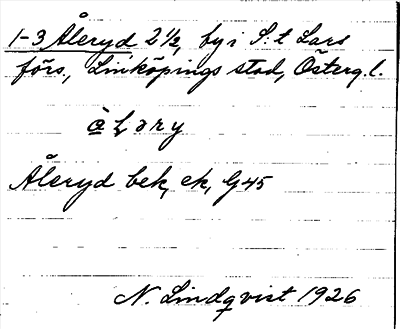 1-3 Åleryd 2 1/2, by i S:t Lars
förs., Linköpings stad, Österg.l.
Åleryd bek, ek, G45
N. Lindqvist 1926